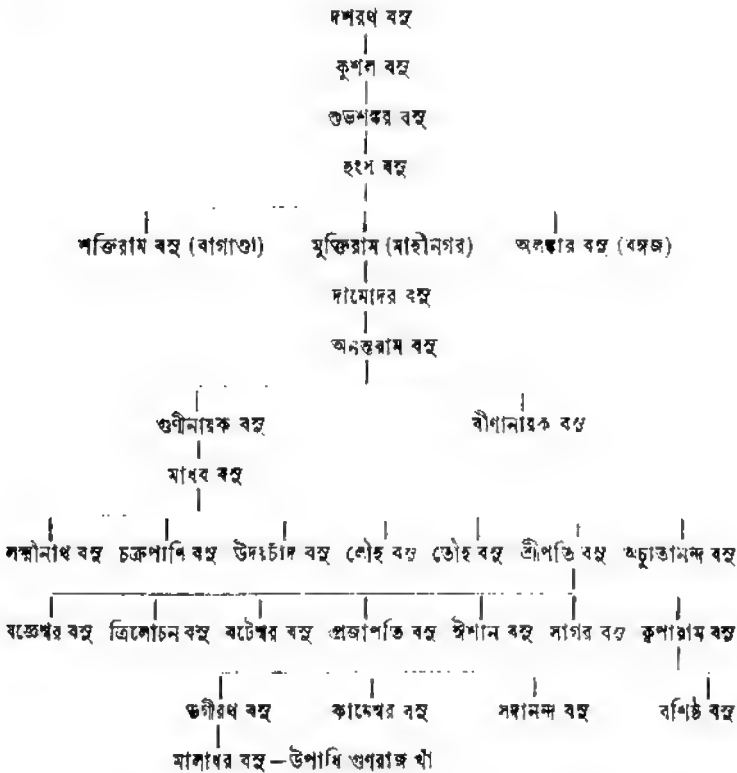 দশরথ বসু
কুশল বসু
শুভশঙ্কর বসু
হংস বসু
শক্তিরাম বসু (বাগাণ্ডা) মুক্তিরাম (মাহীনগর) অলঙ্কার বসু (বঙ্গজ)
দামোদর বসু
অনন্তরাম বসু
গুণীনায়ক বসু বীণানায়ক বসু
মাধব বসু
লক্ষ্মীনাথ বসু চক্রপাণি বসু উদয়চাঁদ বসু বসু তৌহ বসু শ্রীপতি বসু অচ্যুতানন্দ বসু
যজ্ঞেশ্বর বসু ত্রিলোচন বসু বটেশ্বর বসু প্রজাপতি বসু ঈশান বসু সাগর বসু কৃপারাম বসু
ভগীরথ বসু কামেশ্বর বসু সদানন্দ বসু বশিষ্ঠ বসু
মালাধর বসু — উপাধি গুণরাজ খাঁ